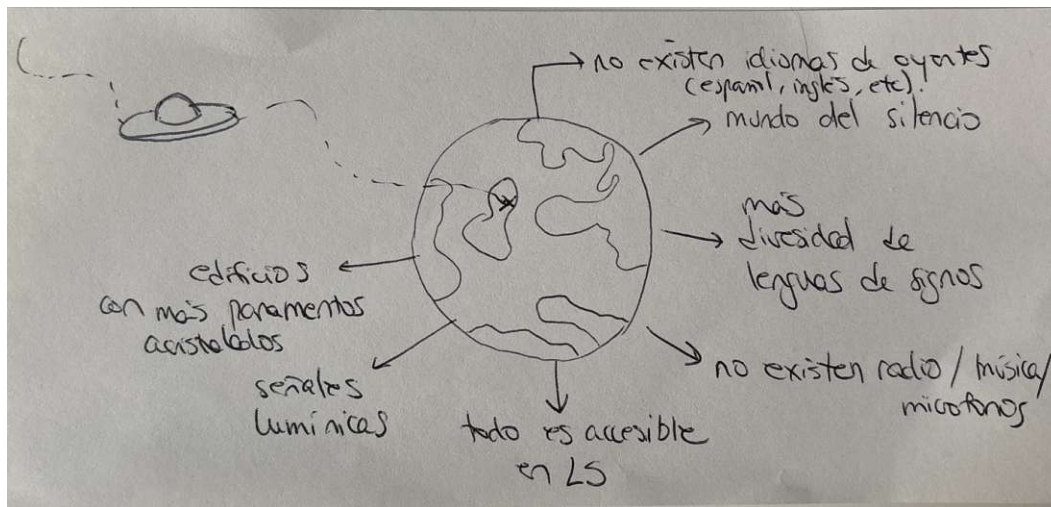 no existen idiomas de oyentes
(español, inglés, etc).
mundo del silencio
más
divesidad de
lenguas de signos
no existen radio / música/
micofonos
todo es accesible
en LS
señales
lumínicas
edificios
con más paramentos
acristalados